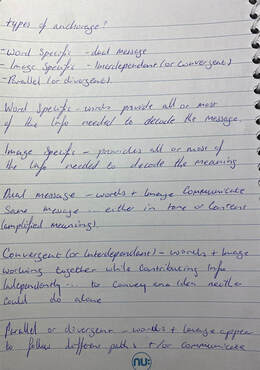 types of anchorage?
- Word Specific - dual message
- Image Specific - Interdependent (or Convergent)
- Parallel (or divergent).
Word Specific - words provide all or most
of the info needed to decode the message.
Image Specific - provides all or most of
the info needed to decode the meaning
Dual message - words + image communicate
same message ... either in tone or content
(amplified meaning).
Convergent (or Interdependent) - words + image
working together while contributing info
independently ... to convey an idea neither
could do alone
Parallel or divergent - words + image appear
to follow different paths +/or communicate
nu: